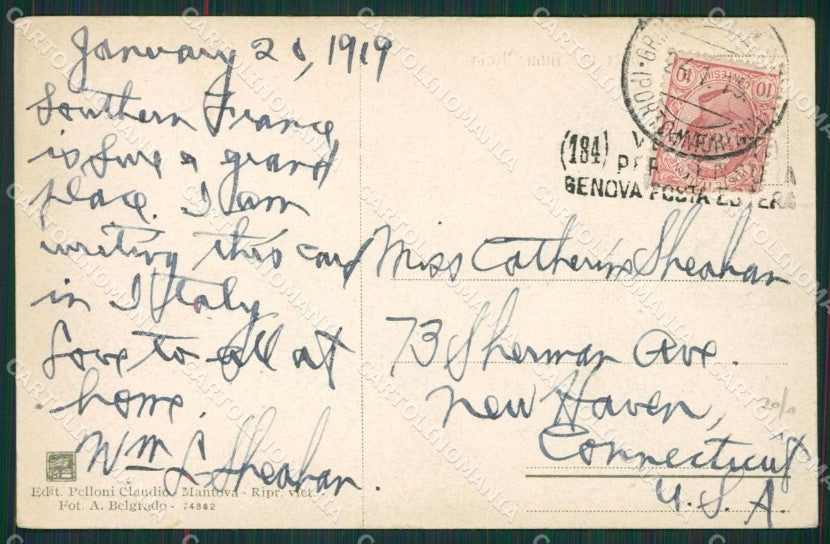 January 28, 1919
Southern France
is sure a grand
place. I am
writing this card
in Italy
Love to all at
home.
Wm L. Sheahan.
Edit. Pelloni Claudio - Mantova - Ripr. viet.
Fot. A. Belgrado - 74362
10 CENTESIMI 10
(PORTO
(184)
GENOVA POSTA ESTERA
Miss Catherine Sheahan
73 Sherman Ave.
New Haven,
Connecticut
U.S.A.
20/1
CARTOLINOMANIA